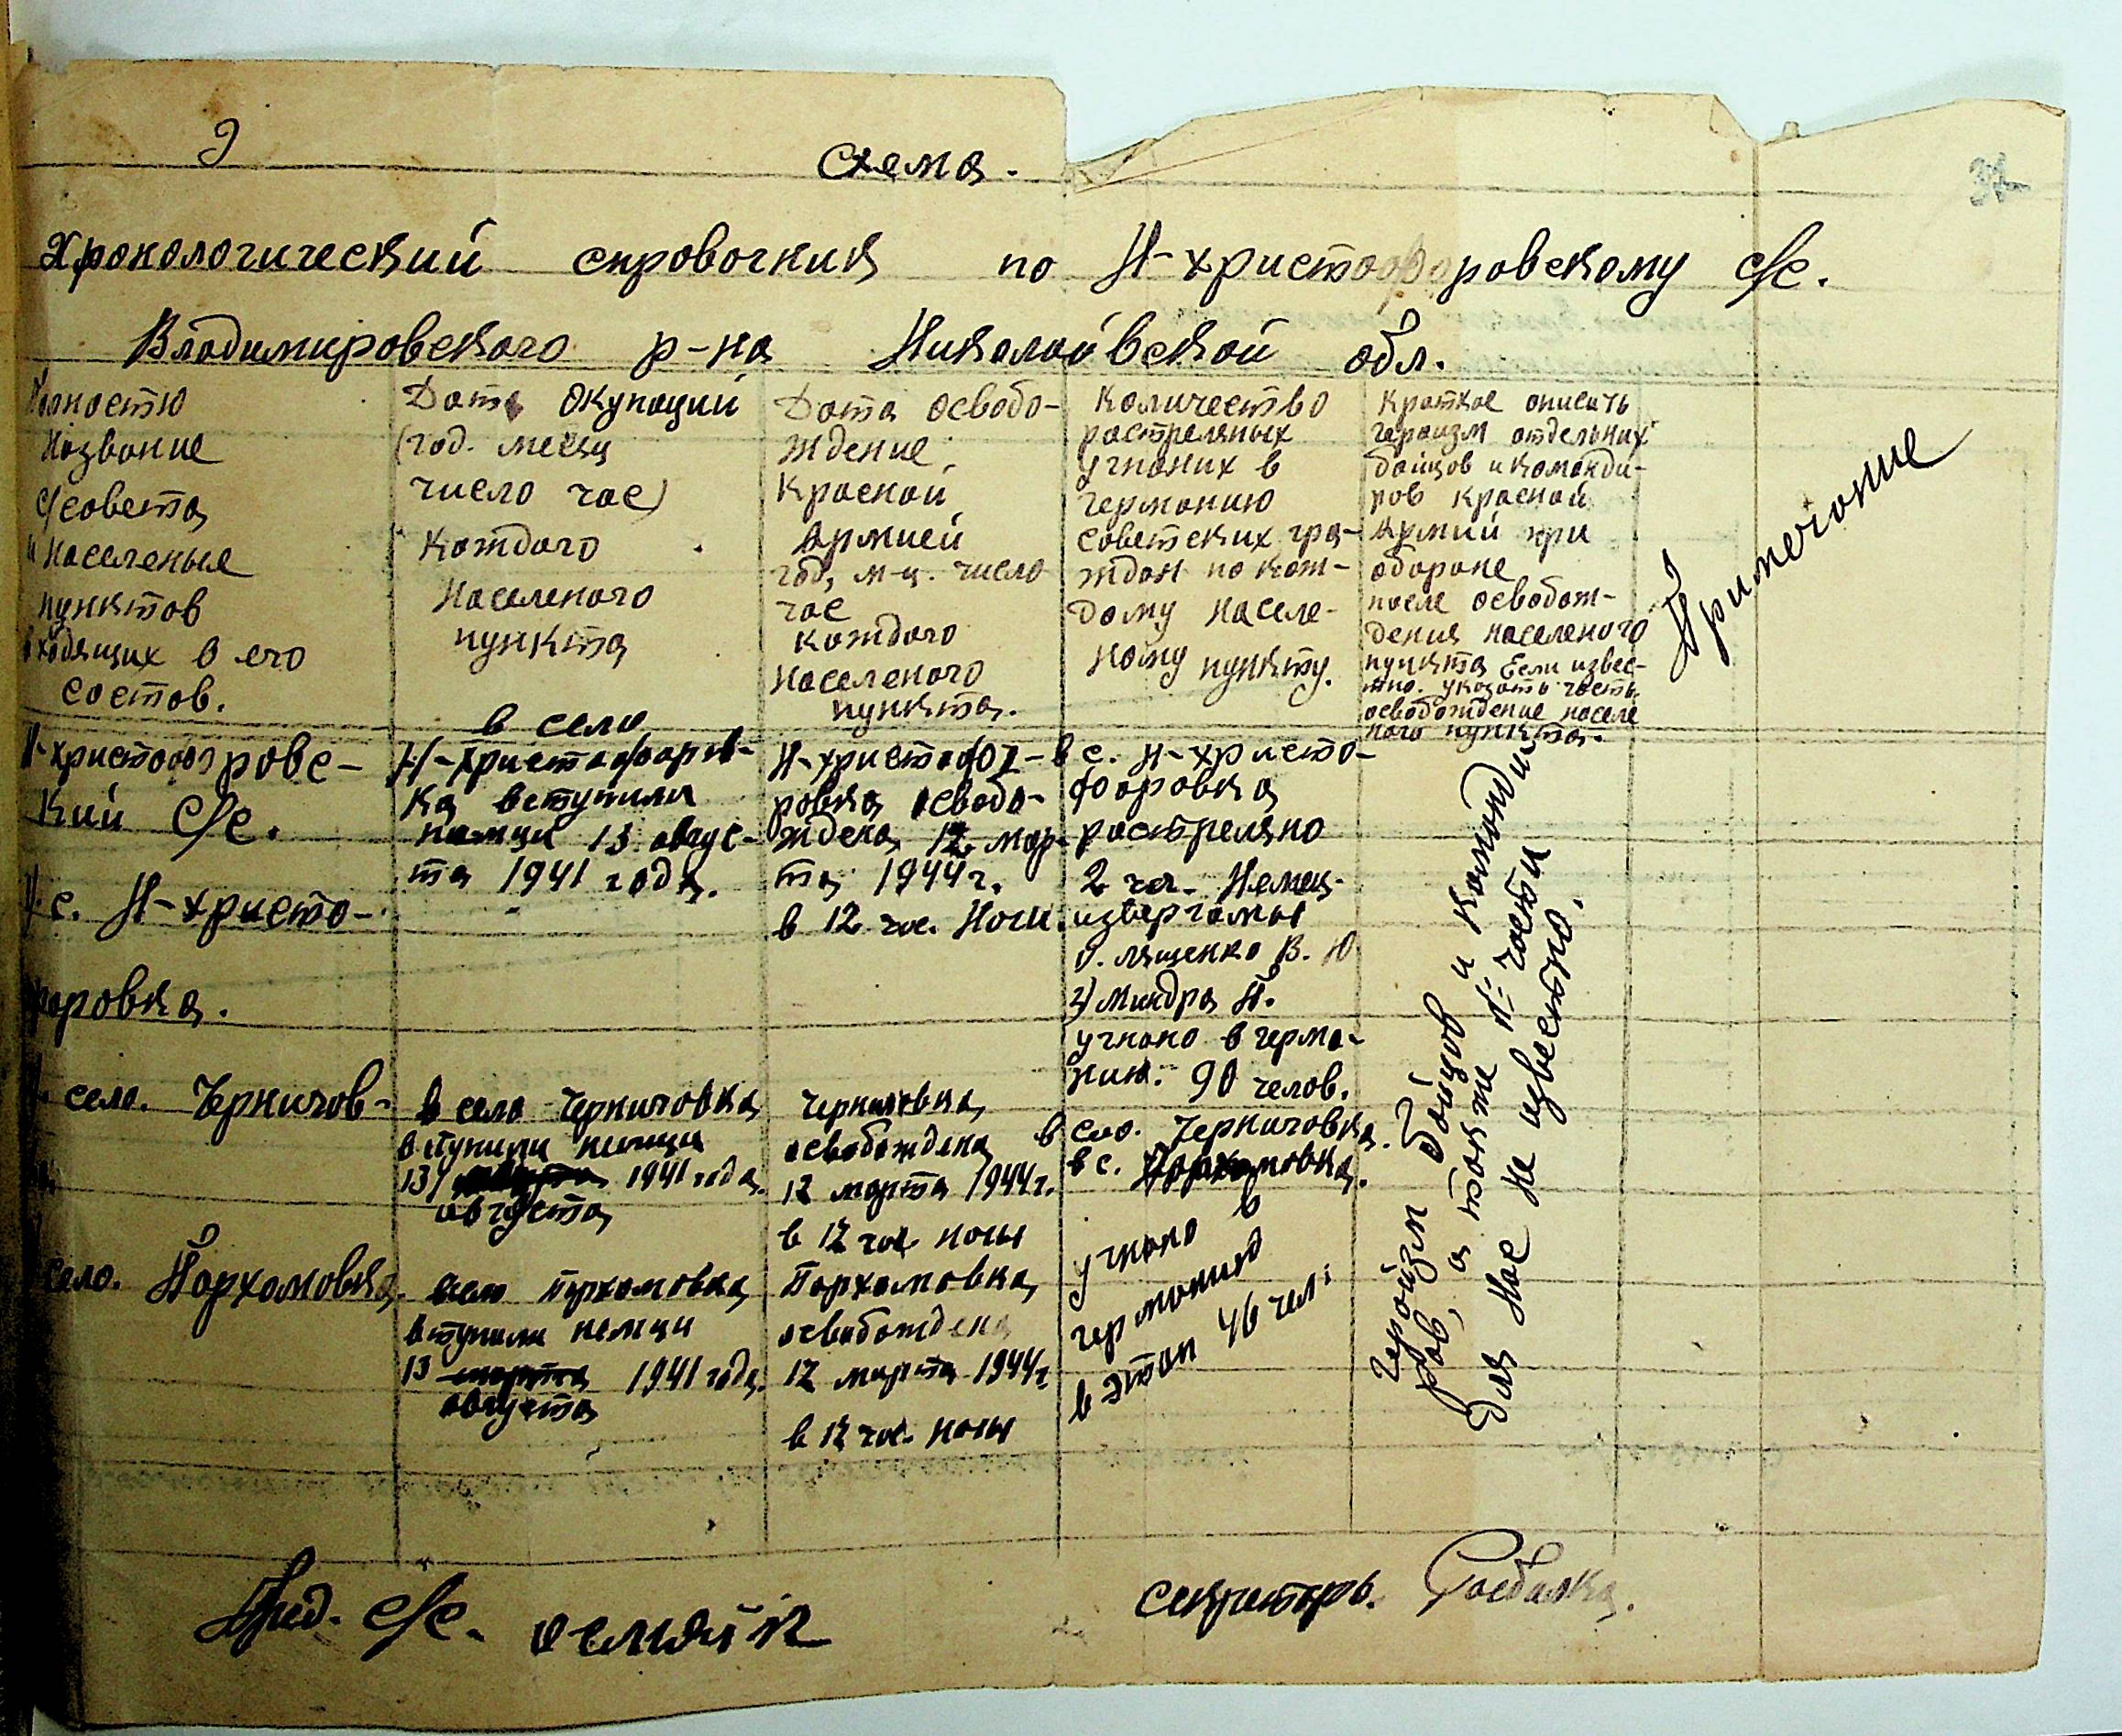 Схема.
Хронологический справочник по Н-христофоровскому с/с.
Владимировского р-на Николаевской обл.
Полностю
Название
с/совета
и населеные
пунктов
входящих в его
состов.
Дата окупации
(год. месяц
число час)
каждого
населеного
пункта
Дата освобо-
ждение
Красной
Армией
год, м-ц. число
час
каждого
населеного
пункта.
Количество
растреляных
угнаних в
германию
советских гра-
ждан по каж-
дому населе-
ному пункту.
Краткое описать
героизм отдельних
бойцов и команди-
ров красной
Армии при
обороне
после освобож-
дения населеного
пункта Если извес-
тно. указать часть
освобождение населе
ного пункта.
Примечание
Н-христофорове-
кий с/с.
с. Н-христо-
форовка.
в село
Н-христофоров-
ка вступили
немци 13 авгус-
та 1941 года.
Н-христофо-
ровка освобо-
ждена 12 мар-
та 1944г.
в 12 час. Ночи.
в с. Н-христо-
форовка
растреляно
2 чел. Немец-
извергамы
1. Лященко В. Ю
2) Миндра Н.
угнано в герма-
нию. 90 челов.
село. Черничов-
ка
в село Черниговка
вступили немци
13) 1941 года.
августа
Черниговка
освобождена
12 марта 1944г.
в 12 час ночы
в село. Черниговка.
в с. Пархомовка.
угнано в
германию
в этап 46 чел.
село. Пархомовка.
село Пархомовка
вступили немци
13 марта 1941 года.
августа
Пархомовка
освобождена
12 марта 1944г
в 12 час. ночы
Геройзм бойцов и команди
ров, а также № части
для нас не известно.
Пред. с/с.
секретарь.